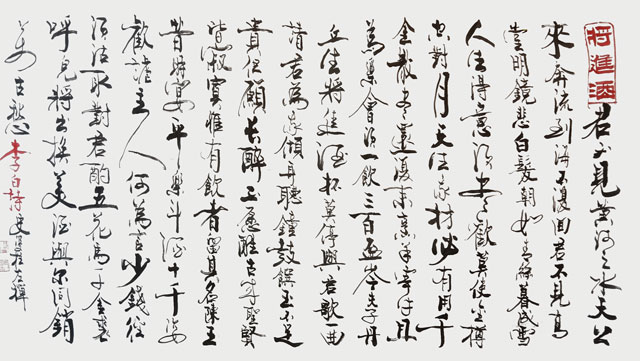 将進酒
君不見黄河之水天上
來奔流到海不復回君不見高
堂明鏡悲白髮朝如青絲暮成雪
人生得意須盡歡莫使金樽
空對月天生我材必有用千
金散盡還復來烹羊宰牛且
為樂會須一飲三百杯岑夫子丹
丘生將進酒杯莫停與君歌一曲
請君為我傾耳聽鐘鼓饌玉不足
貴但願長醉不願醒古來聖賢
皆寂寞惟有飲者留其名陳王
昔時宴平樂斗酒十千恣
歡謔主人何為言少錢徑
須沽取對君酌五花馬千金裘
呼兒將出換美酒與爾同銷
萬古愁李白詩